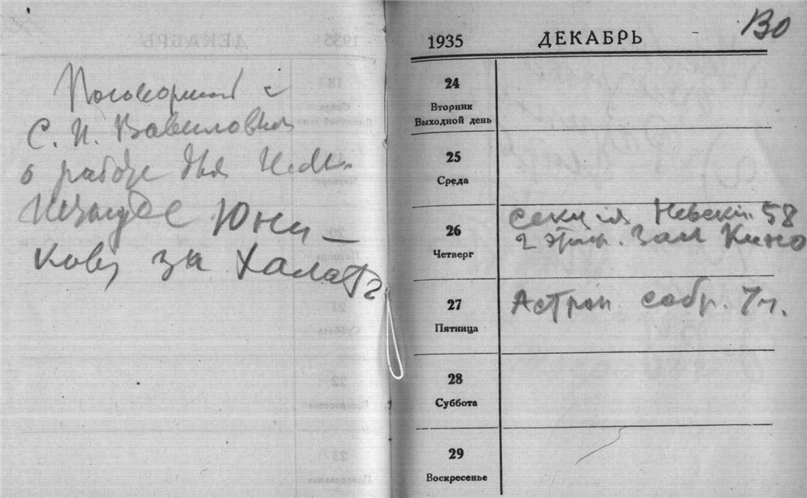 Поговорить с
С. И. Вавиловым
о работе для
за халат
ВО
1935 ДЕКАБРЬ
24
Вторник
Выходной день
25
Среда
26
Четверг
секция Невский 58
2 этаж. Зал Кино
27
Пятница
Астрон собр. 7 ч.
28
Суббота
29
Воскресенье